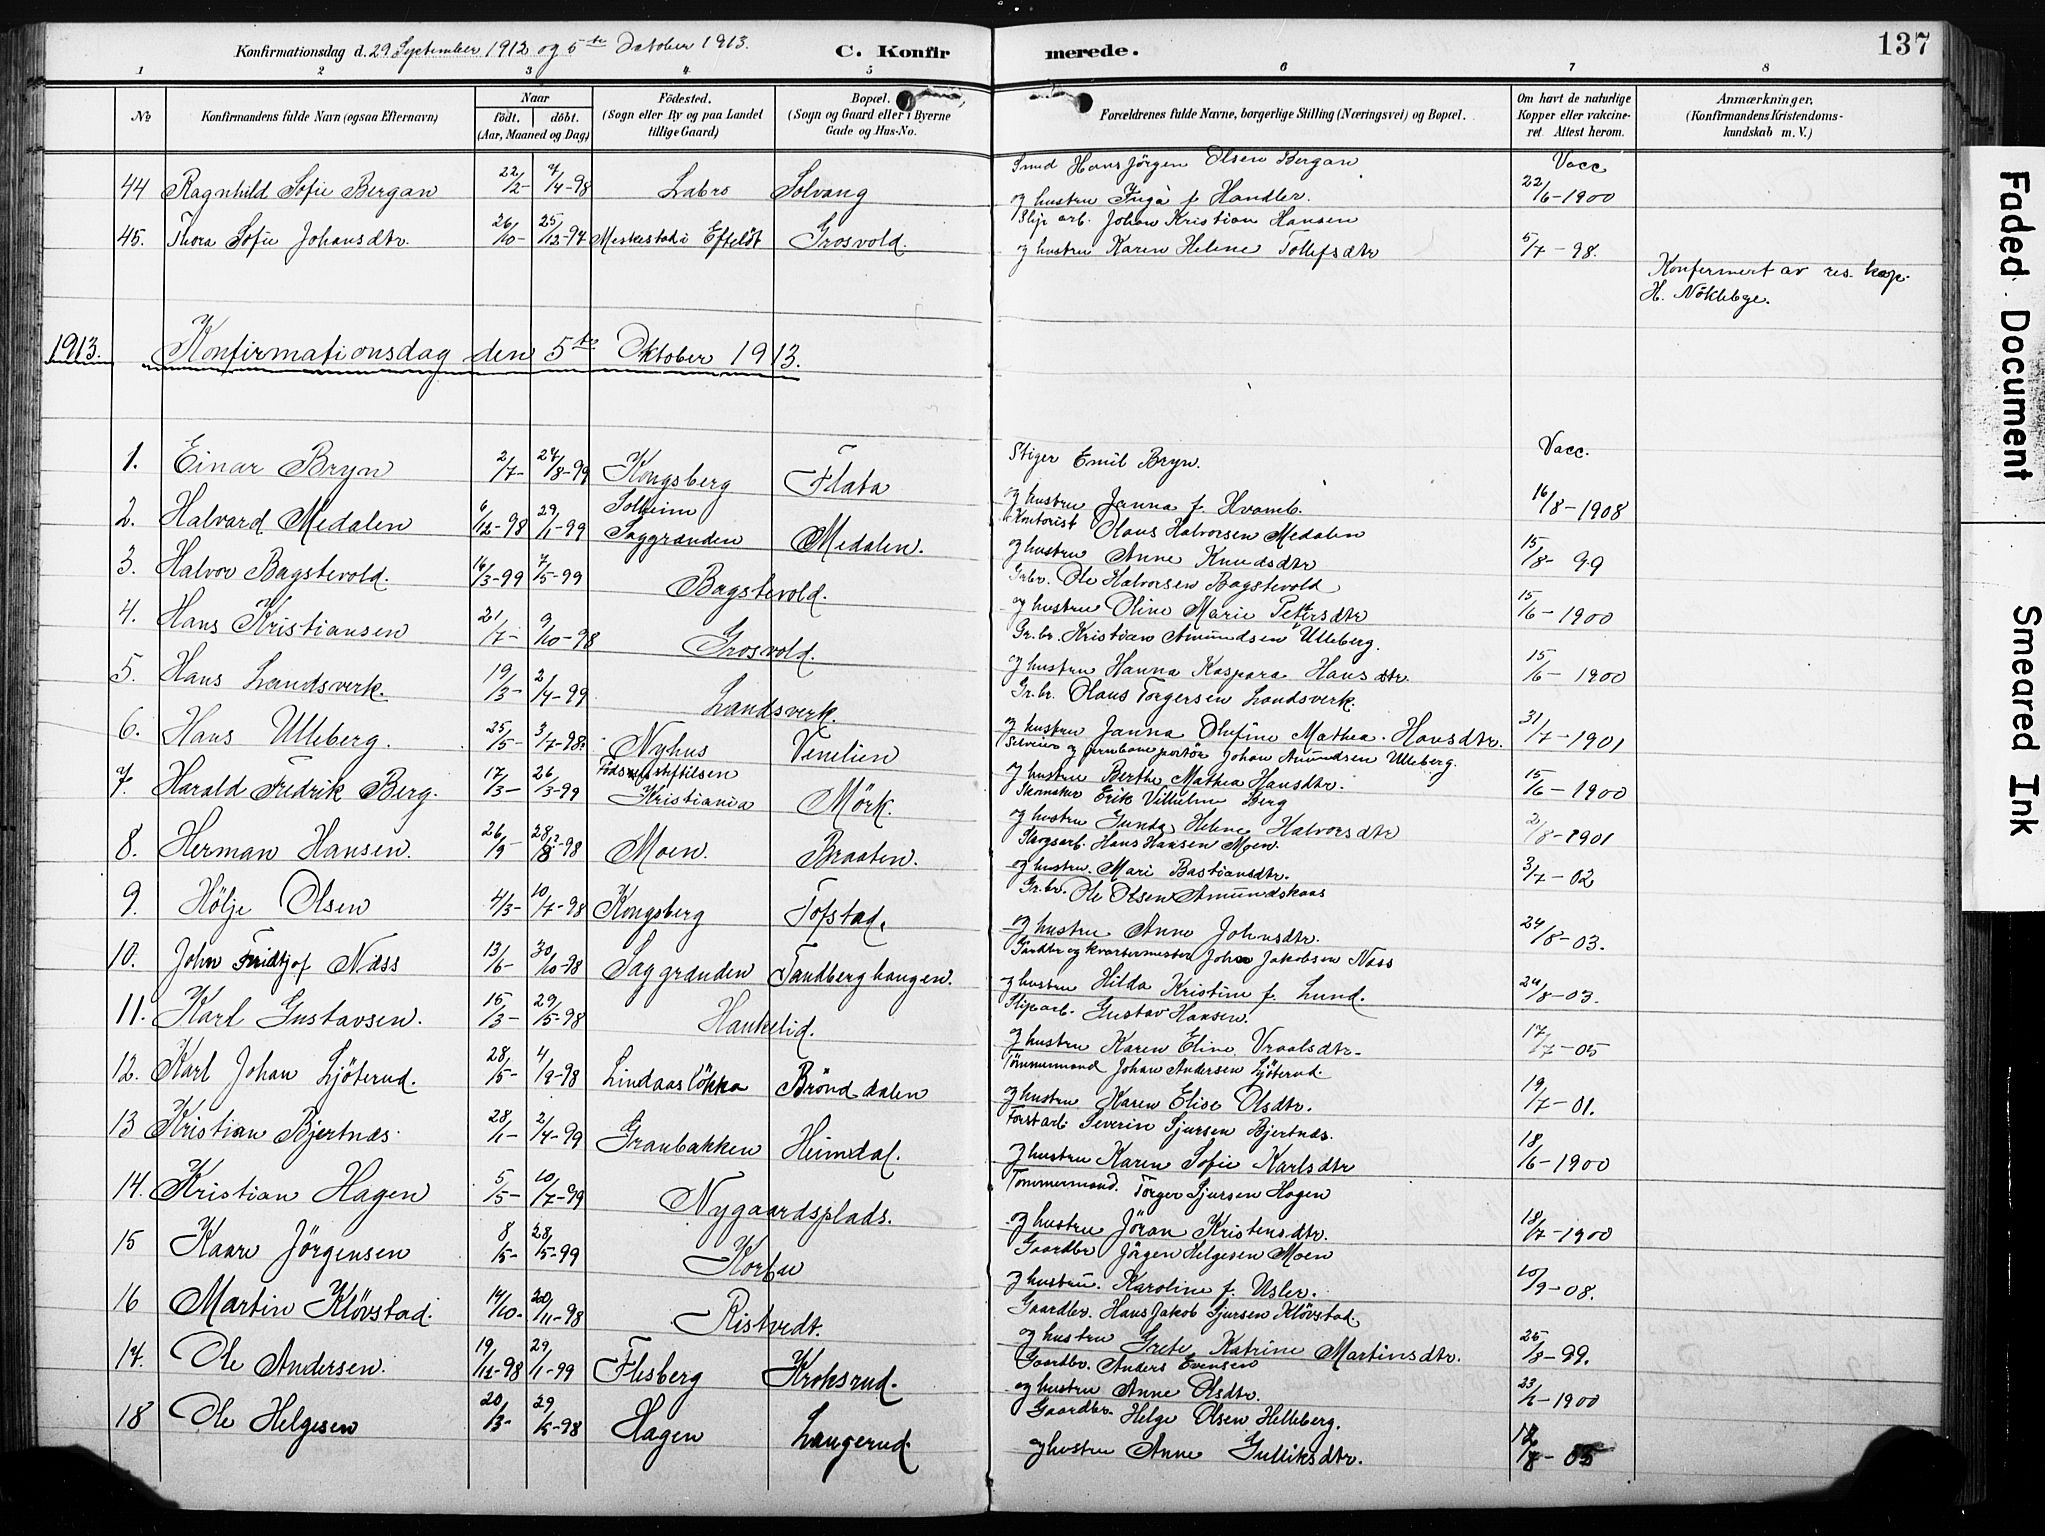 Konfirmationsdag d. 29 September 1912 og 5te October 1913. C. Konfirmerede. 137
1 2 3 4 5 6 7 8
No Konfirmandens fulde Navn (ogsaa Efternavn) Naar født. døbt. (Aar, Maaned og Dag) Fødested. (Sogn eller By og paa Landet tillige Gaard) Bopæl. (Sogn og Gaard eller i Byerne Gade og Hus-No. Forældrenes fulde Navne, borgerlige Stilling (Næringsvei) og Bopæl. Om havt de naturlige Kopper eller vakcineret. Attest herom. Anmærkninger. (Konfirmandens Kristendomskundskab m. V.)
44 Ragnhild Sofie Bergan 22/2- 7/4-98 Labro Solvang Smed Hans Jörgen Olsen Bergan Vacc
og hustru Inga f. Handler. 22/6-1900
45. Thora Sofie Johansdtr. 26/10- 25/12-97 Efteløt Grosvold. Slip arb. Johan Kristian Hansen
og hustru Karen Helene Tollefsdtr 5/7-98.
Konfermert av res. kap.
H. Nöklebye.
1913. Konfirmationsdag den 5te Oktober 1913.
1. Einar Bryn 2/7- 27/8-99 Kongsberg Flata Stiger Emil Bryn. Vacc.
og hustru Janna f. Hvamb. 16/8-1908
2. Halvard Medalen 6/12-98 29/1-99 Solheim Saggrenden Medalen. Kontorist Olaus Halvorsen Medalen
og hustru Anne Knudsdtr 15/8-99
3. Halvor Bagstevold. 16/3-99 7/5-99 Bagstevold. Grbr. Ole Halvorsen Bagstevold
og hustru Oline Marie Petersdtr 15/6-1900
4. Hans Kristiansen 21/7- 9/10-98 Grosvold. Gr.br. Kristian Amundsen Ulleberg.
og hustru Hanna Kaspara Hansdtr. 15/6-1900
5. Hans Landsverk. 19/3- 2/4-99 Landsverk. Gr.br. Olaus Torgersen Landsverk.
og hustru Janna Olufine Mathea Hansdtr. 31/7-1901
6. Hans Ulleberg. 25/5- 3/7-98. Nyhus Venelien Selveier og jernbaneportör Johan Amundsen Ulleberg.
og hustru Berthe Mathea Hansdtr. 15/6-1900
7. Harald Fredrik Berg. 17/3- 26/3-99 Födselsstiftelsen Kristiania Mörk. Skomaker Erik Vilhelm Berg
og hustru Gunda Helene Halvorsdtr 2/8-1901
8. Herman Hansen. 26/9- 28/12-98 Moen. Braaten. Sagarb. Hans Hansen Moen.
og hustru. Mari Bastiansdtr. 3/7-02
9. Hölje Olsen 4/3- 10/7-98 Kongsberg Tofstad. Gr.br. Ole Olsen Amundskaas
og hustru Anne Johnsdtr. 24/8-03.
10. John Fridtjof Næss 13/6- 30/10-98 Saggrenden Tandberghaugen. Gaardbr og kvartermester John Jakobsen Næss
og hustru Hilda Kristine f. Lund. 24/8-03.
11. Karl Gustavsen. 15/3- 29/5-98 Haukelid. Sliparb. Gustav Hansen.
og hustru Karen Eline Vraalsdtr. 17/7-05
12. Karl Johan Ljöterud. 28/5- 4/9-98 Lindaaslökka Brönddalen Tömmermand Johan Andersen Ljöterud.
og hustru Karen Elise Olsdtr. 19/7-01.
13 Kristian Bjertnæs 28/1- 2/4-99 Granbakken Heimdal. Forstarb. Severin Sjursen Bjertnæs.
og hustru Karen Sofie Karlsdtr 18/6-1900
14. Kristian Hagen 5/5- 10/7-99 Nygaardsplads. Tömmermand. Torger Sjursen Hagen
og hustru Jöran Kristensdtr. 18/7-1900
15 Kaare Jörgensen 8/5- 28/5-99 Korbu Gaardbr Jörgen Helgesen Moen
og hustru. Karoline f. Usler. 10/9-08.
16 Martin Klövstad. 14/10- 20/11-98 Ristvedt. Gaardbr. Hans Jakob Sjursen Klövstad.
og hustru Grete Katrine Martinsdtr. 25/8-99.
17. Ole Andersen. 19/12-98 29/1-99 Flesberg Kroksrud. Gaardbr. Anders Evensen
og hustru Anne Olsdtr. 23/6-1900
18 Ole Helgesen 20/3- 29/5-98 Hagen Langerud. Gaardbr. Helge Olsen Helleberg.
og hustru Anne Gulliksdtr. -05
Faded Document
Smeared Ink